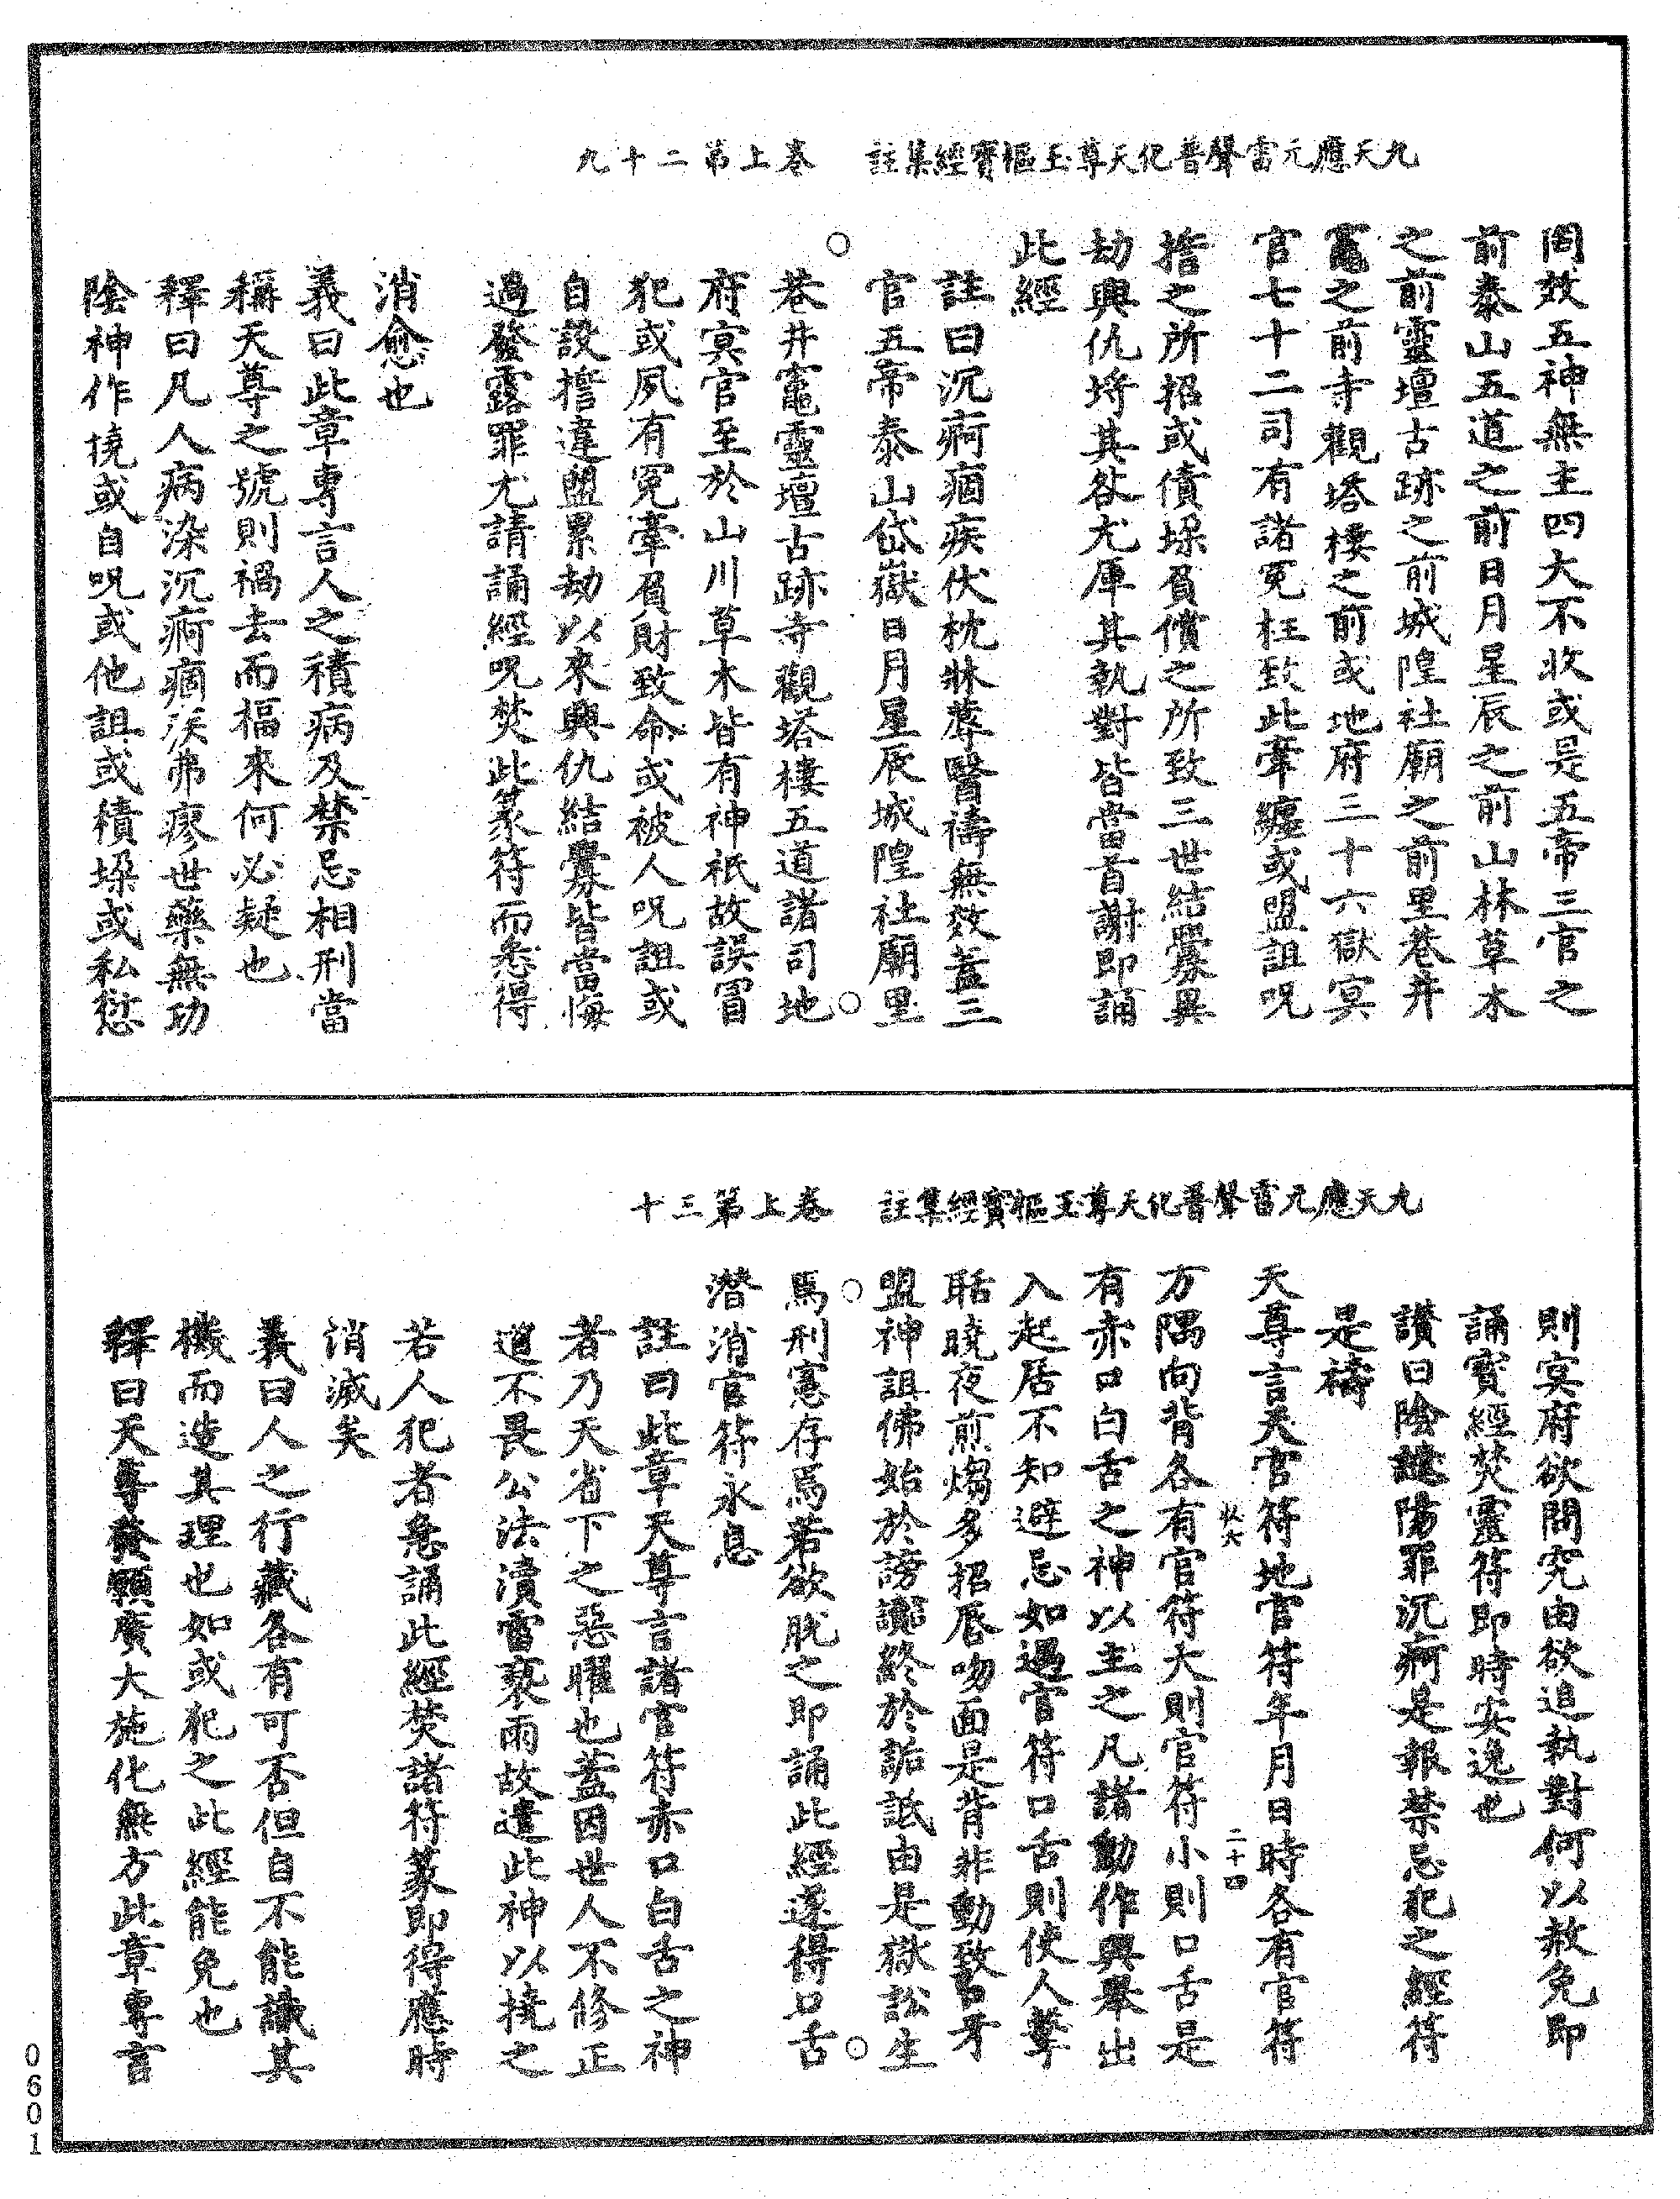 九天應元雷聲普化天尊玉樞寶經集註　卷上第二十九
罔效五神無主四大不收或是五帝三官之
前泰山五道之前日月星辰之前山林草木
之前靈壇古跡之前城隍社廟之前里巷井
竈之前寺觀塔樓之前或地府三十六獄冥
官七十二司有諸冤枉致此牽纏或盟詛呪
誓之所招或債垛負償之所致三世結釁異
劫興仇埒其咎尤厙其執對皆當首謝即誦
此經
註曰沉痾痼疾伏枕牀蓐醫禱無效蓋三
官五帝泰山岱嶽日月星辰城隍社廟里
巷井竈靈壇古跡寺觀塔樓五道諸司地
府冥官至於山川草木皆有神祇故誤冒
犯或夙有冤牽負財致命或被人呪詛或
自設誓違盟累劫以來興仇結釁皆當悔
過發露罪尤請誦經呪焚此篆符而悉得
消愈也
義曰此章專言人之積病及禁忌相刑當
稱天尊之號則禍去而福來何必疑也
釋曰凡人病染沉痾痼疾弗瘳世藥無功
陰神作撓或自呪或他詛或積垛或私愆
九天應元雷聲普化天尊玉樞寶經集註　卷上第三十
則冥府欲問究由欲追執對何以赦免即
誦寶經焚靈符即時安逸也
讚曰陰譴陽罪沉痾是報禁忌犯之經符
是禱
天尊言天官符地官符年月日時各有官符
二十四
方隅向背各有官符大則官符小則口舌是
有赤口白舌之神以主之凡諸動作興舉出
入起居不知避忌如遇官符口舌則使人擊
聒曉夜煎煼多招唇吻面是背非動致口牙
盟神詛佛始於謗讟終於詬詆由是獄訟生
焉刑憲存焉若欲脫之即誦此經遂得口舌
潛消官符永息
註曰此章天尊言諸官符赤口白舌之神
者乃天省下之惡曜也蓋因世人不修正
道不畏公法瀆雷褻雨故遣此神以撓之
若人犯者急誦此經焚諸符篆即得應時
消滅矣
義曰人之行藏各有可否但自不能識其
機而造其理也如或犯之此經能免也
釋曰天尊發願廣大施化無方此章專言
0601